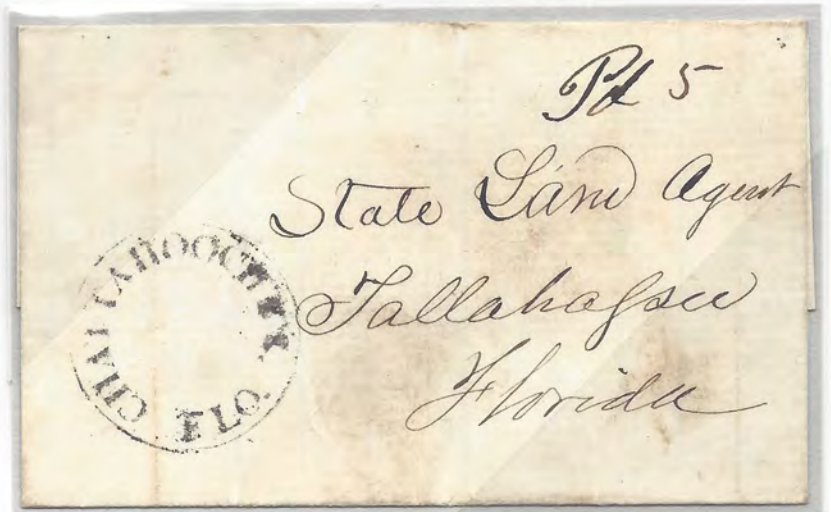 Pd 5
State Land Agent
Tallahassee
Florida
CHATTAHOOCHEE, FLO.